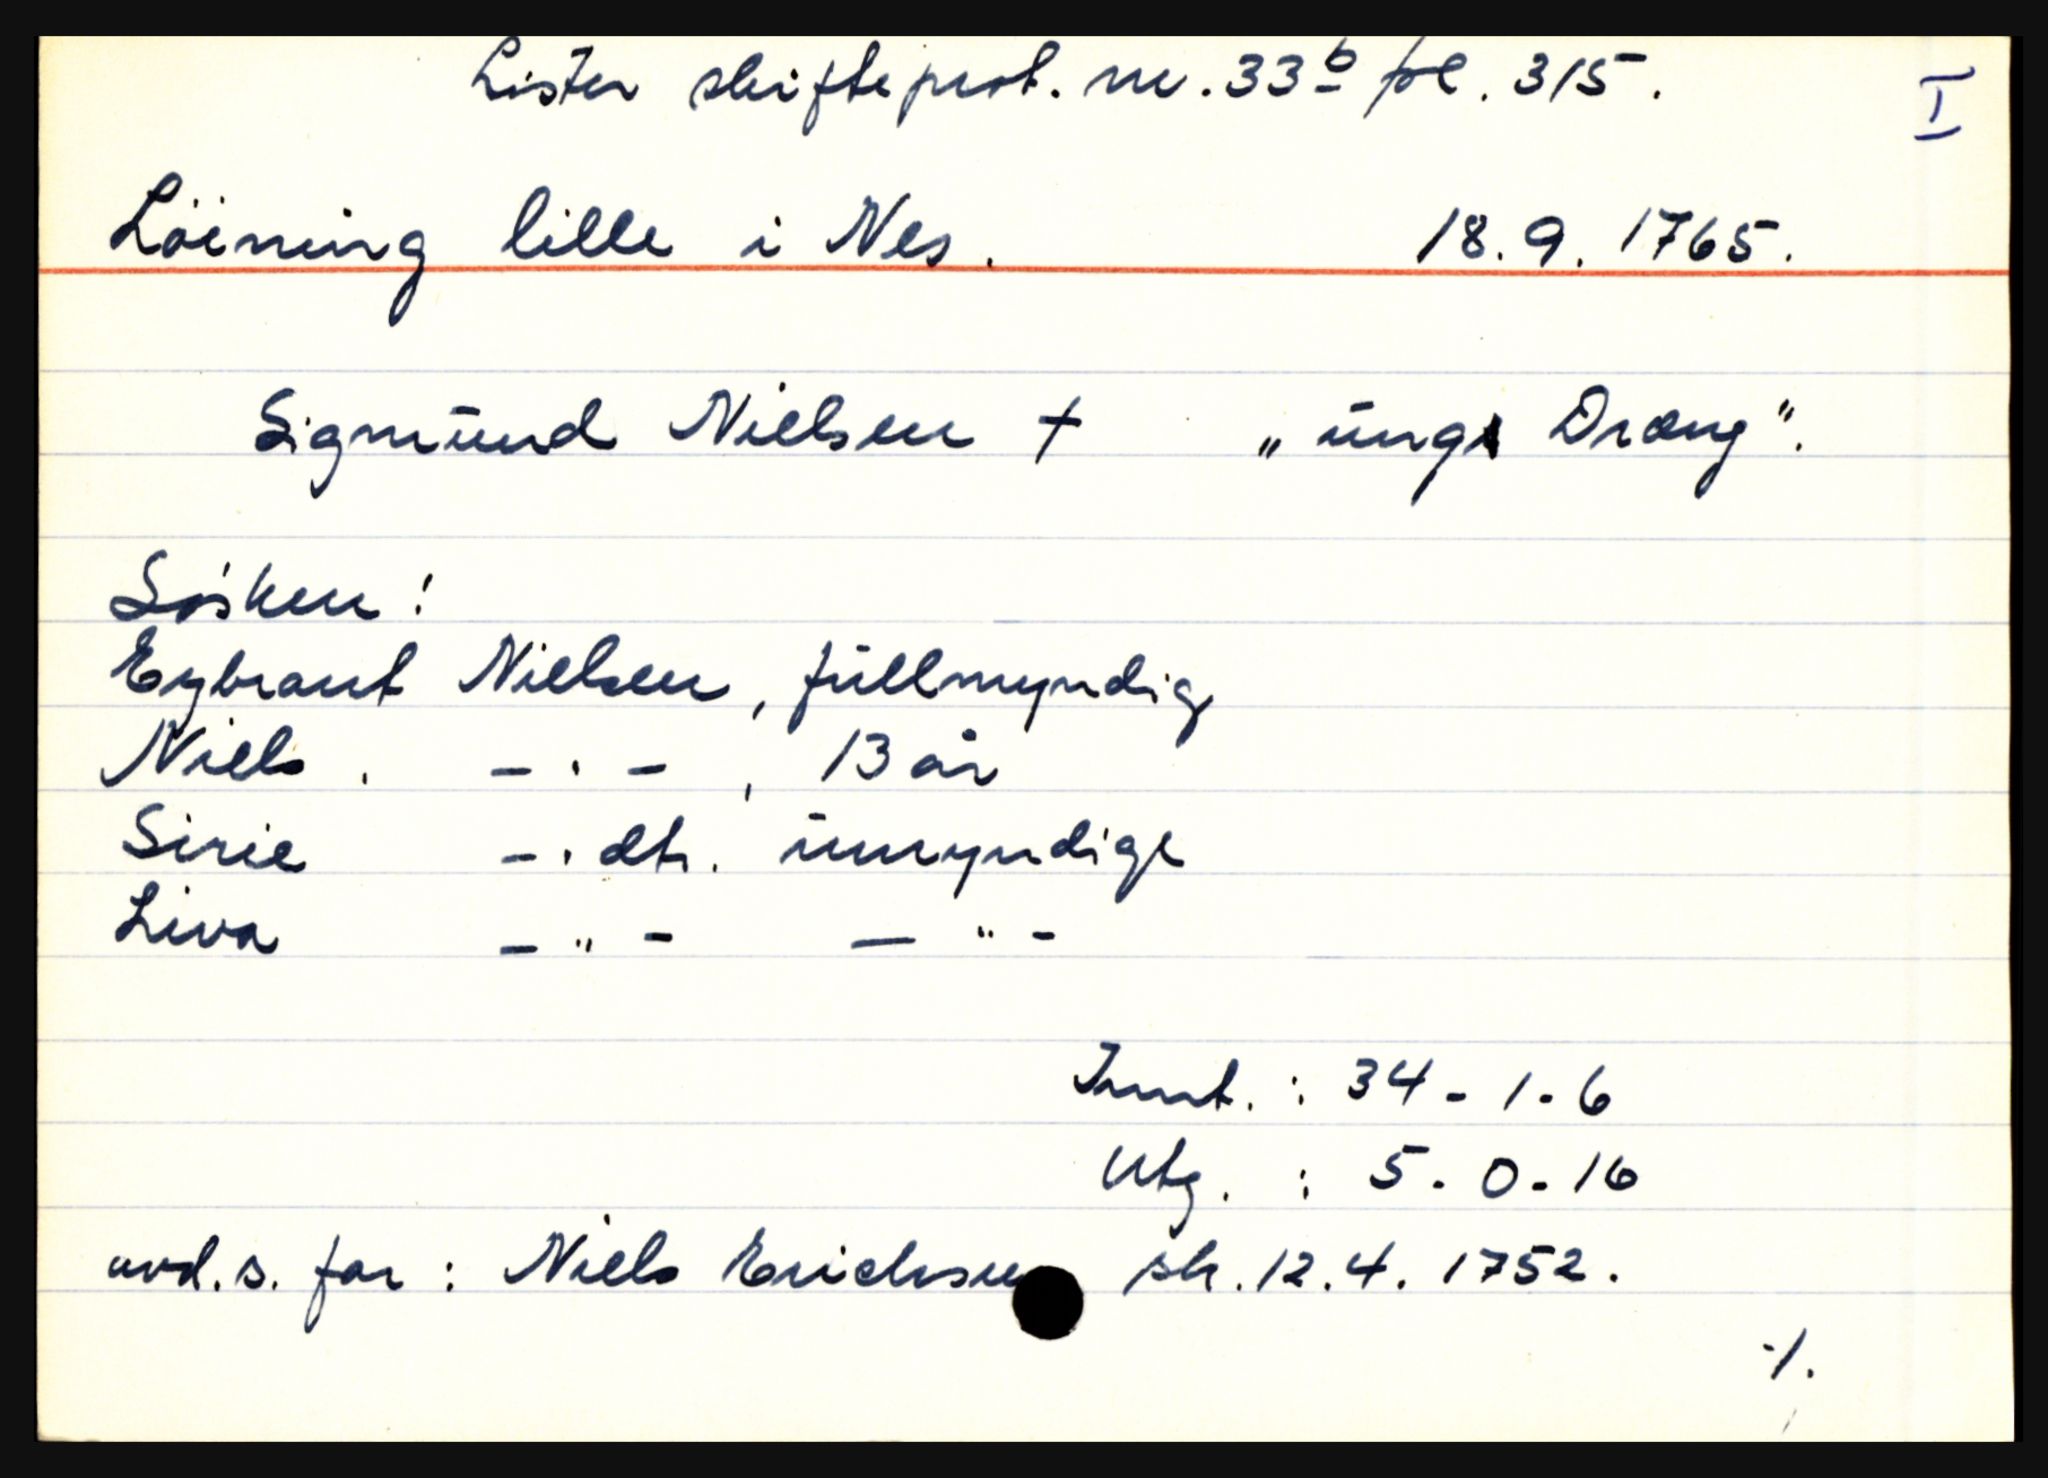 Lister skifteprot. nr. 33b fol. 315.
I
Löining lille i Nes. 18. 9. 1765.
Sigmund Nielsen † „ung Dræng".
Søsken:
Eybrant Nielsen, fullmyndig
Niels -·- , 13 år
Sirie -·dtr. umyndige
Liva - " - - " -
Innt. : 34 - 1 - 6
Utg. : 5 - 0 - 16
avd. s. far : Niels Erichsen sk. 12. 4. 1752.
./.